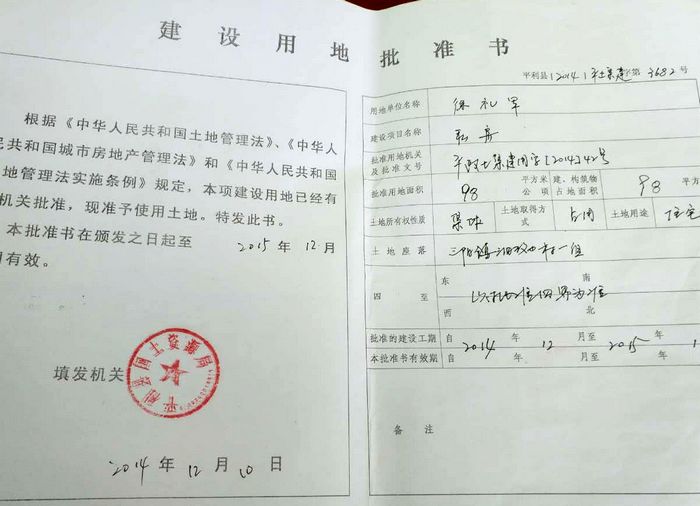 建设用地批准书
根据《中华人民共和国土地管理法》、《中华人
民共和国城市房地产管理法》和《中华人民共和国
地管理法实施条例》规定，本项建设用地已经有
机关批准，现准予使用土地。特发此书。
本批准书在颁发之日起至 2015 年 12 月
有效。
填发机关
平利县国土资源局
2014 年 12 月 10 日
平利县（2014）平土集建字第 3682 号
用地单位名称 徐礼军
建设项目名称
批准用地机关及批准文号 平政土集建用字[2014]42号
批准用地面积 98 平方米 公项 建、构筑物占地面积 98 平方
土地所有权性质 集体 土地取得方式 占用 土地用途 住宅
土地座落 三阳镇 村一组
四至 东 南 西 北 以 四界为准
批准的建设工期 自 2014 年 12 月至 2015 年 1
本批准书有效期 自 年 月至 年
备注